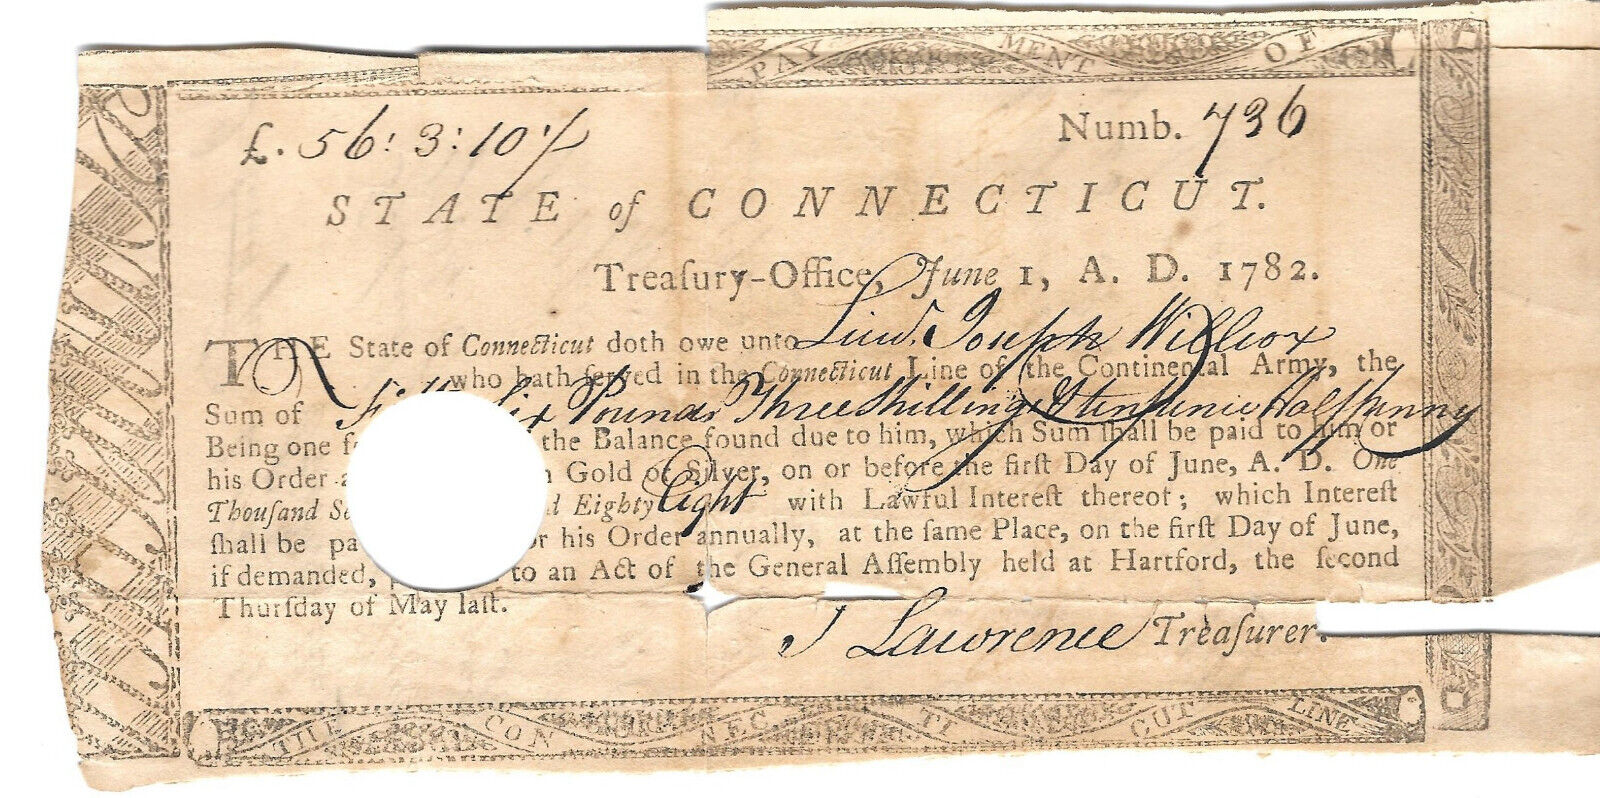 PAY MENT OF
£. 56: 3: 10½ Numb. 736
STATE of CONNECTICUT.
Treaſury-Office, June 1, A. D. 1782.
THE State of Connecticut doth owe unto Lieu.t Joseph Willcox
who hath ſerved in the Connecticut Line of the Continental Army, the
Sum of Six Pounds Three Shillings & ten penie Half penny
Being one the Balance found due to him, which Sum ſhall be paid to him or
his Order Gold or Silver, on or before the firſt Day of June, A. D. One
Thouſand Eighty Eight with Lawful Intereſt thereot; which Intereſt
ſhall be or his Order annually, at the ſame Place, on the firſt Day of June,
if demanded, to an Act of the General Aſſembly held at Hartford, the ſecond
Thurſday of May laſt.
J Lawrence Treaſurer.
THE CON NEC TI CUT LINE